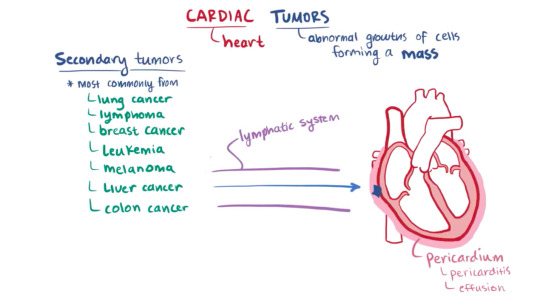 CARDIAC TUMORS
heart
abnormal growths of cells
forming a mass
Secondary tumors
* most commonly from
lung cancer
lymphoma
breast cancer
Leukemia
melanoma
Liver cancer
colon cancer
lymphatic system
pericardium
pericarditis
effusion